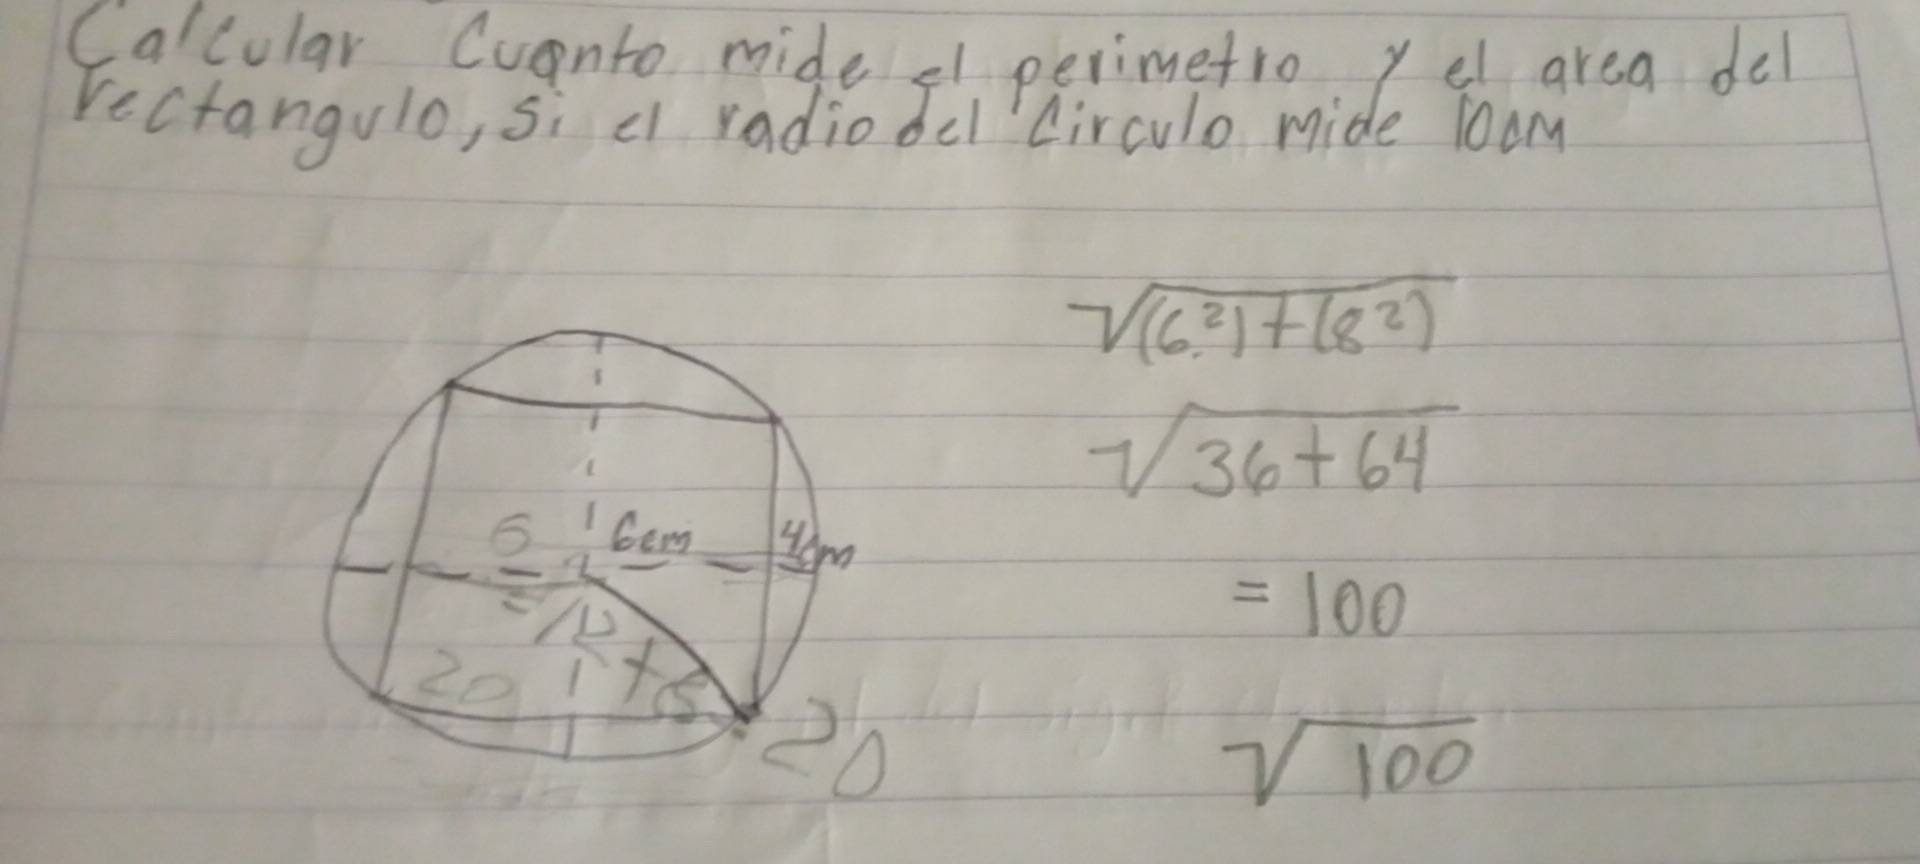 Calcular Cuanto mide el perimetro y el area del
rectangulo, si el radio del Circulo mide 10cm
√(6²)+(8²)
√36+64
6 6cm 4cm
= 100
20
20
√100